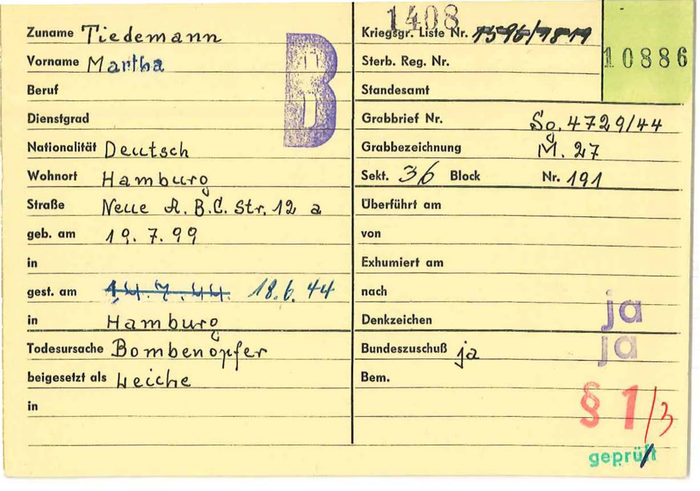 Zuname Tiedemann
Vorname Martha
Beruf
Dienstgrad
Nationalität Deutsch
Wohnort Hamburg
Straße Neue A.B.C. Str. 12 a
geb. am 19.7.99
in
gest. am 14.7.44. 18.6.44
in Hamburg
Todesursache Bombenopfer
beigesetzt als Leiche
in
B
1408
Kriegsgr. Liste Nr. 1596/1819
10886
Sterb. Reg. Nr.
Standesamt
Grabbrief Nr. So. 4729/44
Grabbezeichnung M. 27
Sekt. 36 Block Nr. 191
Überführt am
von
Exhumiert am
nach
Denkzeichen ja
Bundeszuschuß ja ja
Bem.
§ 1/3
geprüft